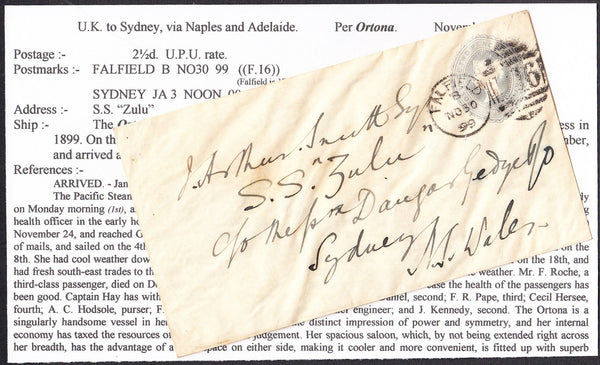 U.K. to Sydney, via Naples and Adelaide. Per Ortona. Novem
Postage :- 2½d. U.P.U. rate.
Postmarks :- FALFIELD B NO30 99 ((F.16))
(Falfield is
SYDNEY JA 3 NOON 00
Address :- S.S. “Zulu”
Ship :- The O
ess in
1899. On th
mber,
and arrived a
References :-
ARRIVED. - Jan
The Pacific Steam
on Monday morning (1st), a
health officer in the early ho
November 24, and reached G
of mails, and sailed on the 4th
8th. She had cool weather dow
on the
on the 18th, and
had fresh south-east trades to th
e weather. Mr. F. Roche, a
third-class passenger, died on D
case the health of the passengers has
been good. Captain Hay has with
Daniel, second; F. R. Pape, third; Cecil Hersee,
fourth; A. C. Hodsole, purser; F.
engineer; and J. Kennedy, second. The Ortona is a
singularly handsome vessel in her
the distinct impression of power and symmetry, and her internal
economy has taxed the resources of
judgement. Her spacious saloon, which, by not being extended right across
her breadth, has the advantage of a
space on either side, making it cooler and more convenient, is fitted up with superb
FALFIELD
B
NO30
99
F
16
J. Arthur Smith Esq
S.S. "Zulu"
c/o Messrs Dangar Gedye & Co
Sydney
N.S. Wales